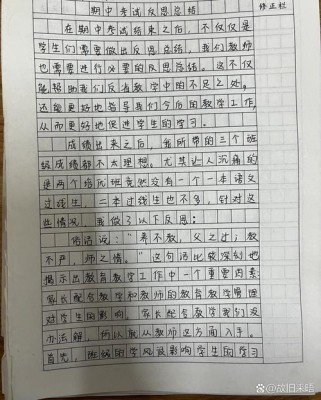 期中考试反思总结
修正栏
在期中考试结束之后，不仅仅是
学生们需要做出反思总结，我们教师
也需要进行必要的反思总结。这不仅
能帮助我们反省教学中的不足之处，
还能更好地指导我们今后的教学工作，
从而更好地促进学生的学习。
成绩出来之后，我所带的三个班
级成绩都不太理想。尤其让人沉痛的
是两个培优班竟然没有一个一本语文
过线生，二本过线生也不多，针对这
些情况，我做了以下反思：
俗话说："养不教，父之过；教
不严，师之惰。"这句话比较深刻地
揭示出教育教学工作中一个重要因素
家长配合教学和教师的教育教学
对学生的影响。家长配合教学我们没
办法解，所以就从教师这方面入手。
首先，班级的学风没影响学生的学习
@故旧未晤